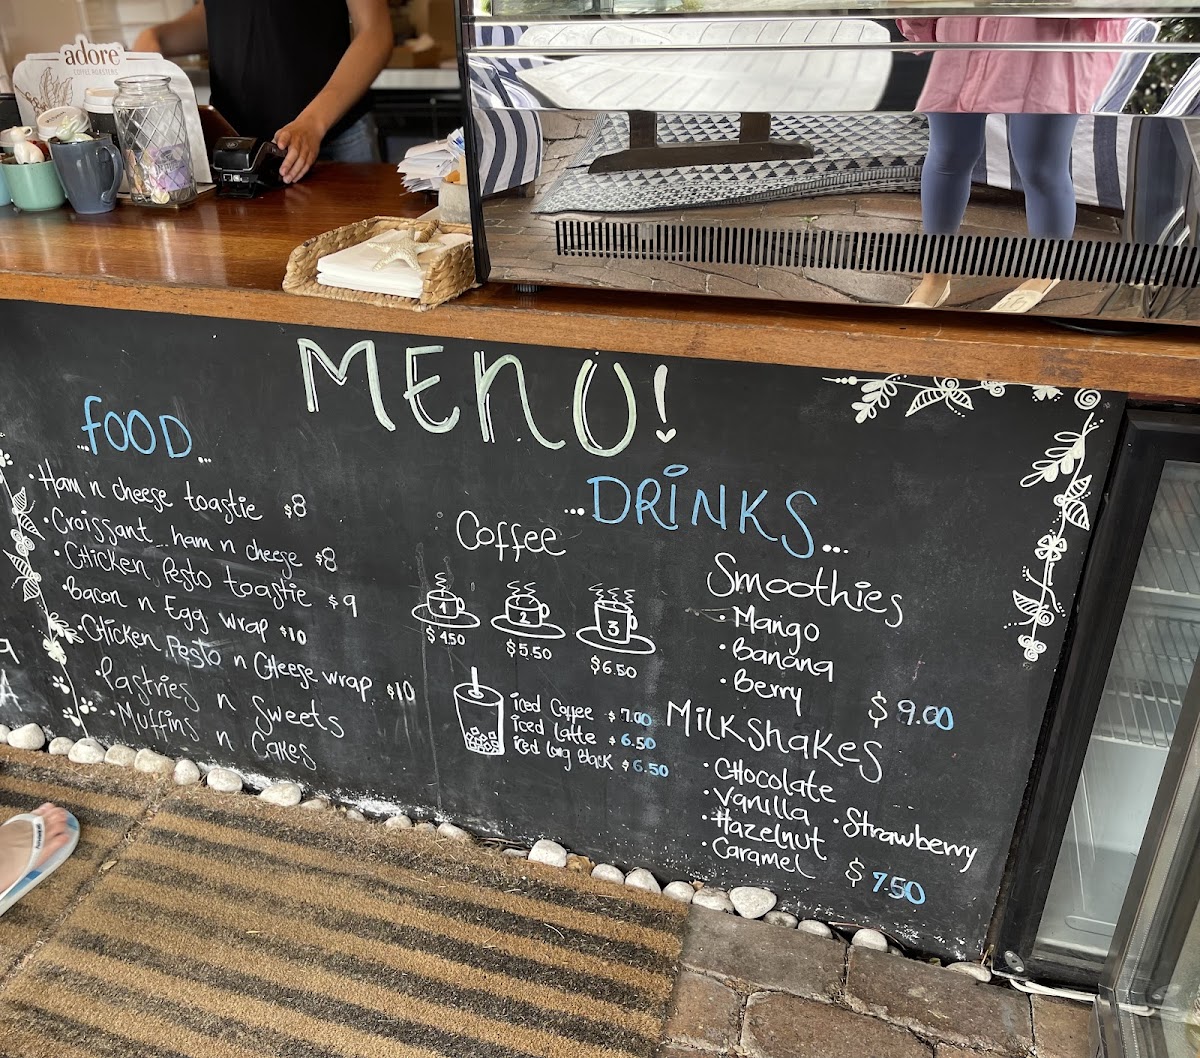 adore
COFFEE ROASTERS
MENU!
..FOOD...
·Ham n cheese toastie $8
·Croissant ham n cheese $8
·Chicken, Pesto toastie $9
·Bacon n Egg wrap $10
·Chicken, Pesto n Cheese wrap $10
·Pastries n Sweets
·Muffins n Cakes
...DRINKS...
Coffee
1 2 3
$4.50 $5.50 $6.50
iced Coffee $7.00
iced latte $6.50
iced long Black $6.50
Smoothies
·Mango
·Banana
·Berry
$9.00
Milkshakes
·Chocolate
·Vanilla ·Strawberry
·Hazelnut
·Caramel $7.50